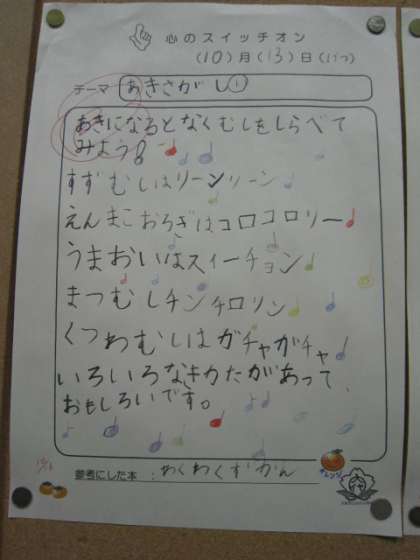 心のスイッチオン
(10)月(13)日(げつ)
テーマ あきさがし①
あきになるとなくむしをしらべて
みよう
すずむしはリーンリーン
えんまこおろぎはコロコロリー
うまおいはスィーチョン
まつむしチンチロリン
くつわむしはガチャガチャ
いろいろななきかたがあって、
おもしろいです。
オレンジ
参考にした本:わくわくずかん